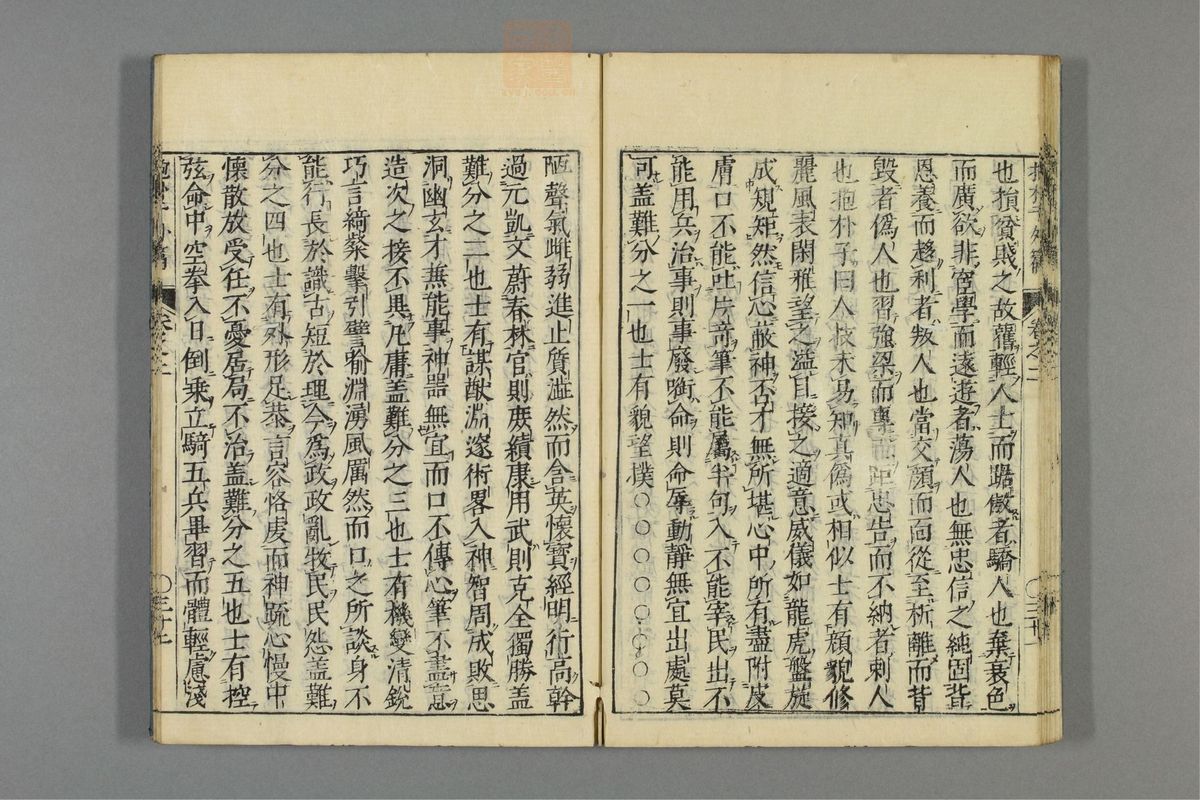 也損貧賤之故舊輕人士而踞傲者驕人也棄衰色
而廣欲非宦學而遠遊者蕩人也無忠信之純固背
恩養而趨利者叛人也當交顔而面從至析離而背
毀者偽人也習強梁而專距忠告而不納者刺人
也抱朴子曰人技未易知真偽或相似士有顔貌修
麗風表閑雅望之溢目接之適意威儀如龍虎盤旋
成規矩然信心蔽神否才無所堪心中所有盡附皮
膚口不能吐片奇筆不能屬半句入不能宰民出不
能用兵治事則事廢銜命則命辱動靜無宜出處莫
可盖難分之一也士有貌望樸〇〇〇〇〇〇〇〇
陋聲氣雌弱進止質澁然而含英懷寶經明行高幹
過元凱文蔚春林官則庶績康用武則克全獨勝盖
難分之二也士有謀猷淵邃術畧入神智周成敗思
洞幽玄才兼能事神器無宜而口不傳心筆不盡意
造次之接不異凡庸盖難分之三也士有機變清銳
巧言綺粲擥引譬喻淵湧風厲然而口之所談身不
能行長於識古短於理今爲政政亂牧民民怨盖難
分之四也士有外形足恭言容恪虔而神疏心慢中
懷散放受任不憂居局不治盖難分之五也士有控
弦命中空拳入日倒乗立騎五兵畢習而體輕慮淺